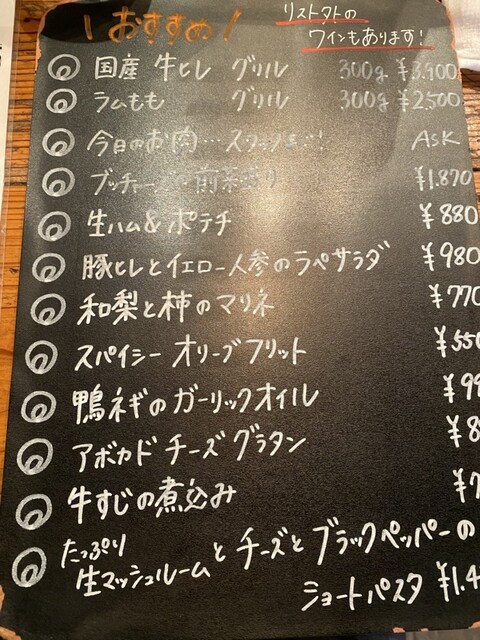 ! おすすめ !
リストタトの
ワインもあります!
国産 牛ヒレ グリル 300g ¥3,900
ラムもも グリル 300g ¥2,500
今日のお肉… ASK
ブッチャー 前菜盛り ¥1,870
生ハム&ポテチ ¥880
豚ヒレとイエロー人参のラペサラダ ¥980
和梨と柿のマリネ ¥770
スパイシー オリーブフリット ¥550
鴨ネギのガーリックオイル ¥99
アボカドチーズグラタン ¥8
牛すじの煮込み ¥7
たっぷり
生マッシュルームとチーズとブラックペッパーの
ショートパスタ ¥1.4